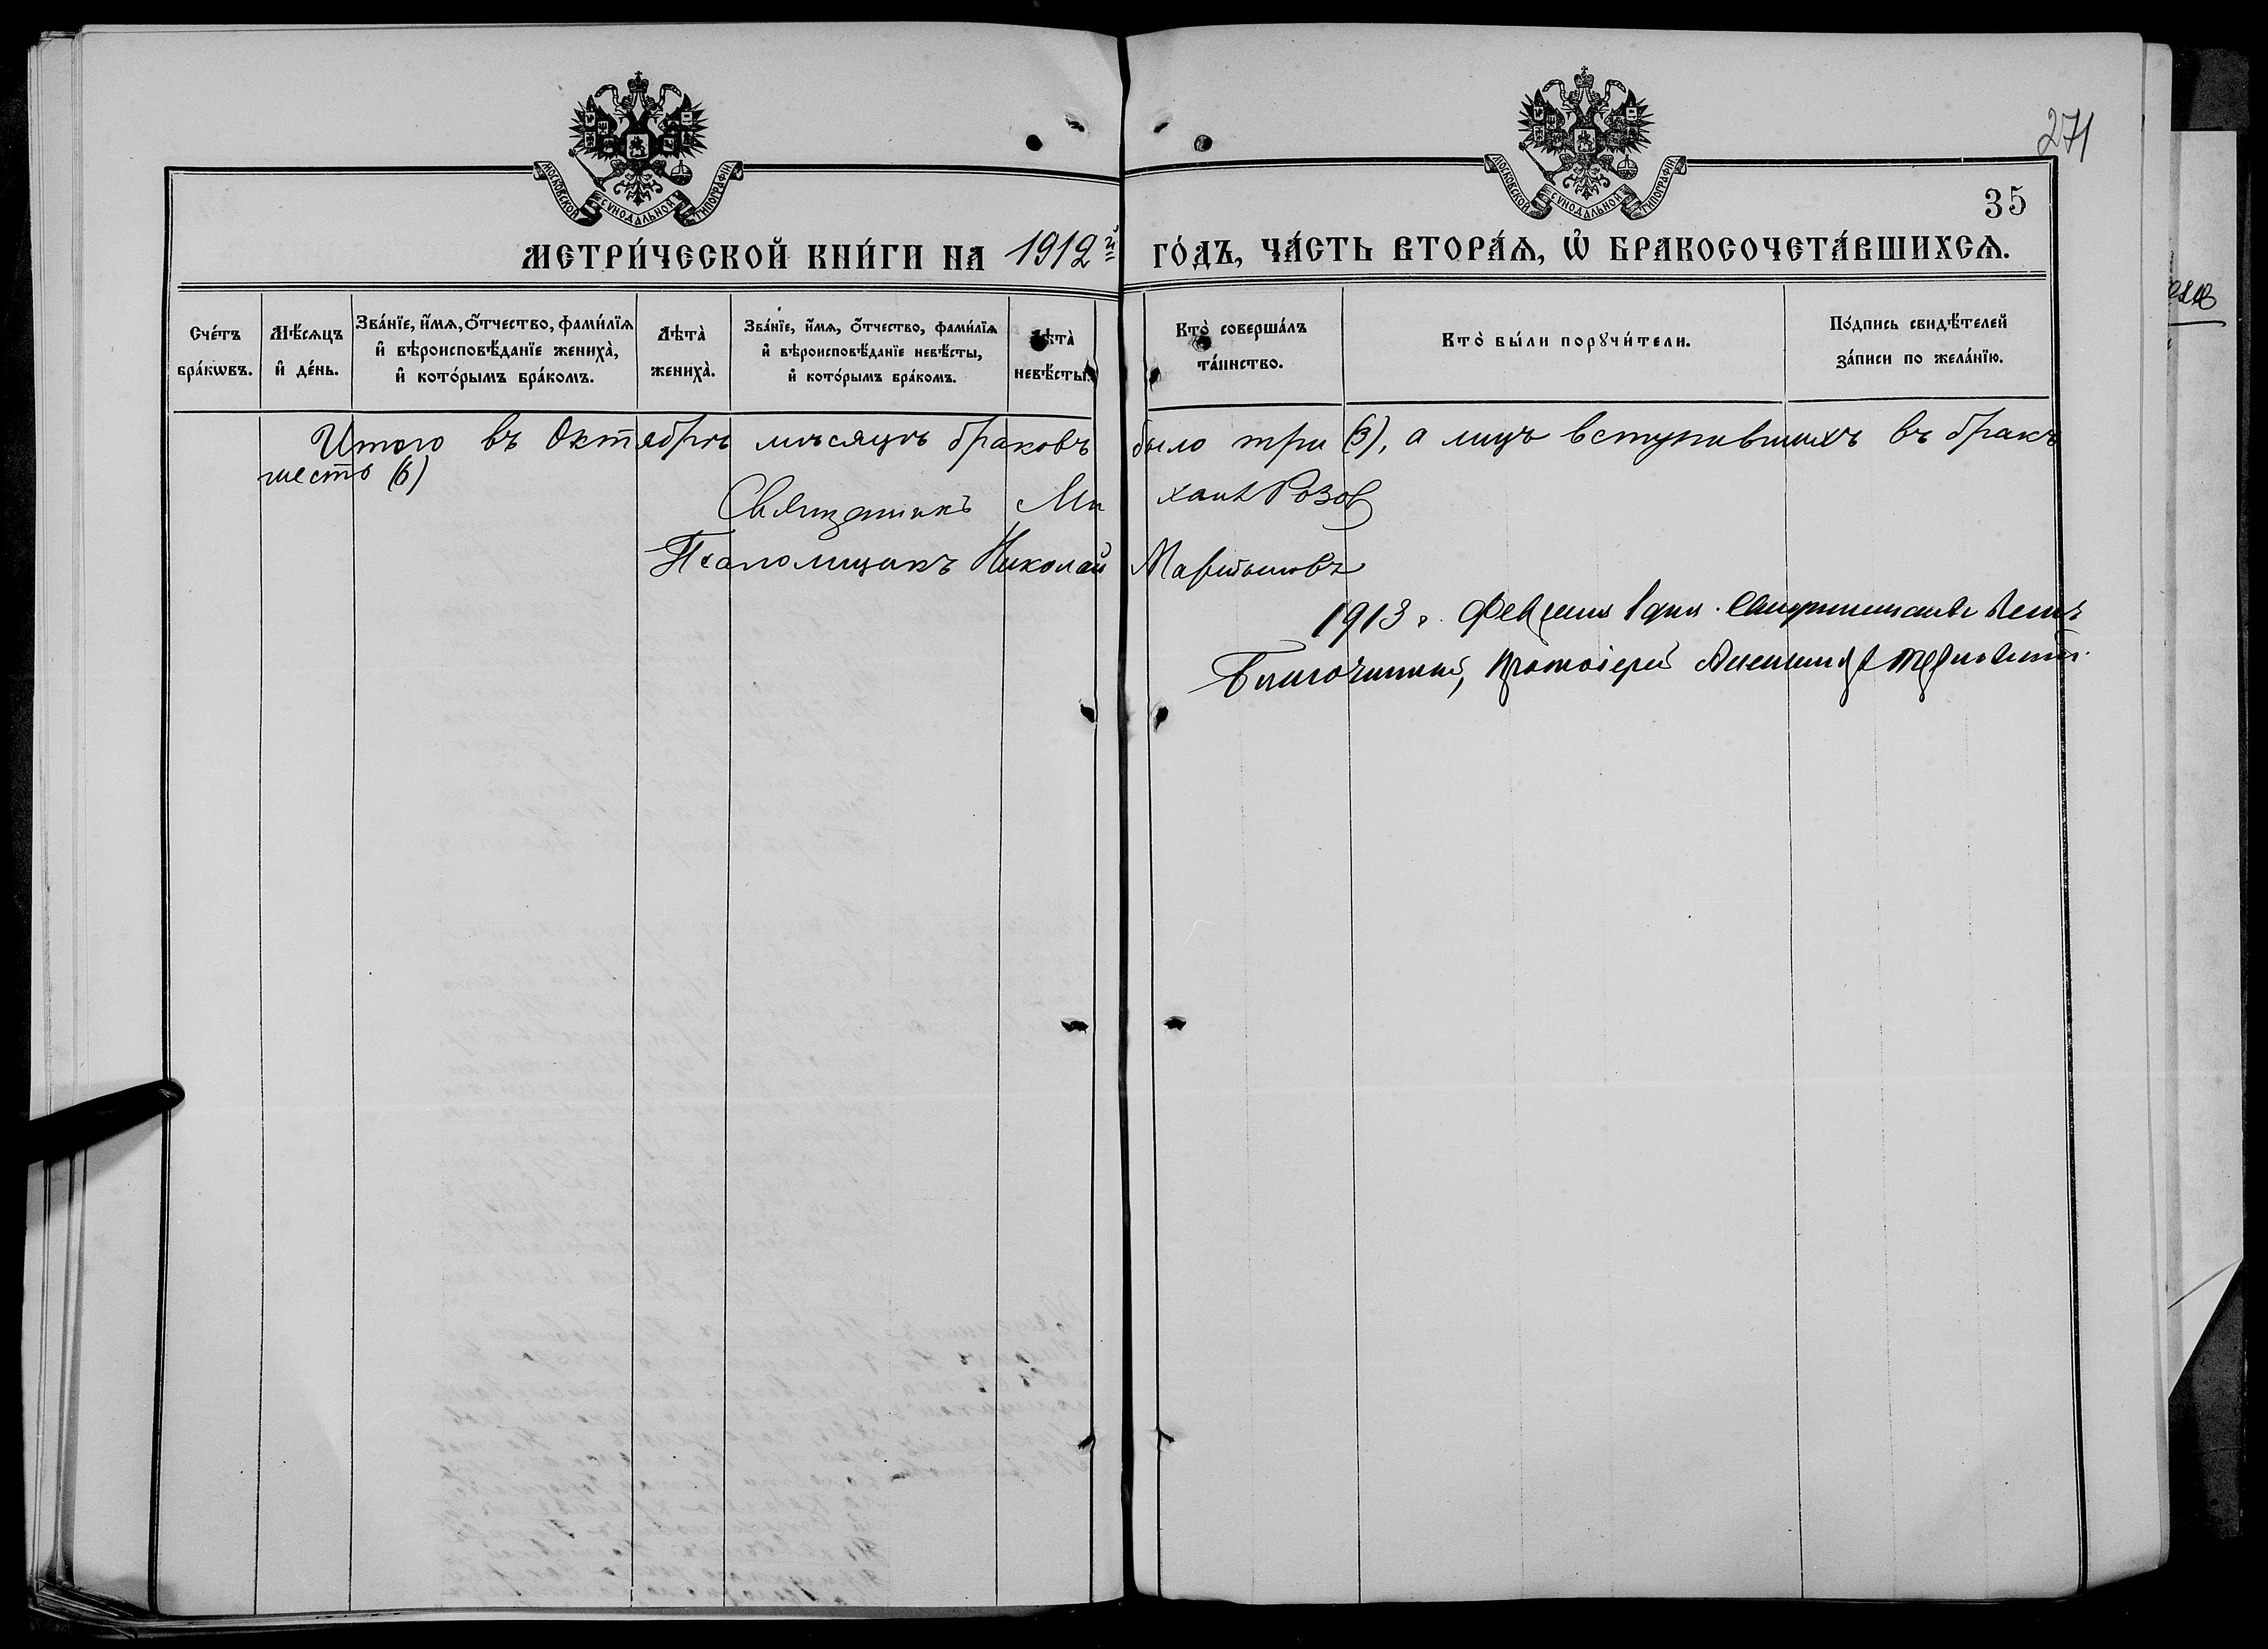 271
МОСКОВСКОЙ СѴНОДАЛЬНОЙ ТИПОГРАФІИ
МОСКОВСКОЙ СѴНОДАЛЬНОЙ ТИПОГРАФІИ
35
МЕТРИ́ЧЕСКОЙ КНИ́ГИ НА 1912й ГО́ДЪ, ЧА́СТЬ ВТОРА́Ѧ, Ѡ҆ БРАКОСОЧЕТА́ВШИХСѦ.
Сче́тъ бра́кѡвъ.
Мѣ́сѧцъ и҆ де́нь.
Зва́нїе, и҆́мѧ, ѻ҆́тчество, фами́лїѧ и҆ вѣроисповѣ́данїе жениха̀, и҆ кото́рымъ бра́комъ.
Лѣта̀ жениха̀.
Зва́нїе, и҆́мѧ, ѻ҆́тчество, фами́лїѧ и҆ вѣроисповѣ́данїе невѣ́сты, и҆ кото́рымъ бра́комъ.
Лѣта̀ невѣ́сты.
Кто̀ соверша́лъ та́инство.
Кто̀ бы́ли порꙋчи́тели.
По́дпись свидѣ́телей за́писи по жела́нїю.
Итого въ Октябрѣ мѣсяцѣ браковъ было три (3), а лицъ вступившихъ въ бракъ
шесть (6)
Священникъ Михаилъ Розов
Псаломщикъ Николай Мартыновъ
1913 г. Февраля 1 дня. Свидѣтельствовалъ
Благочинный, Протоіерей